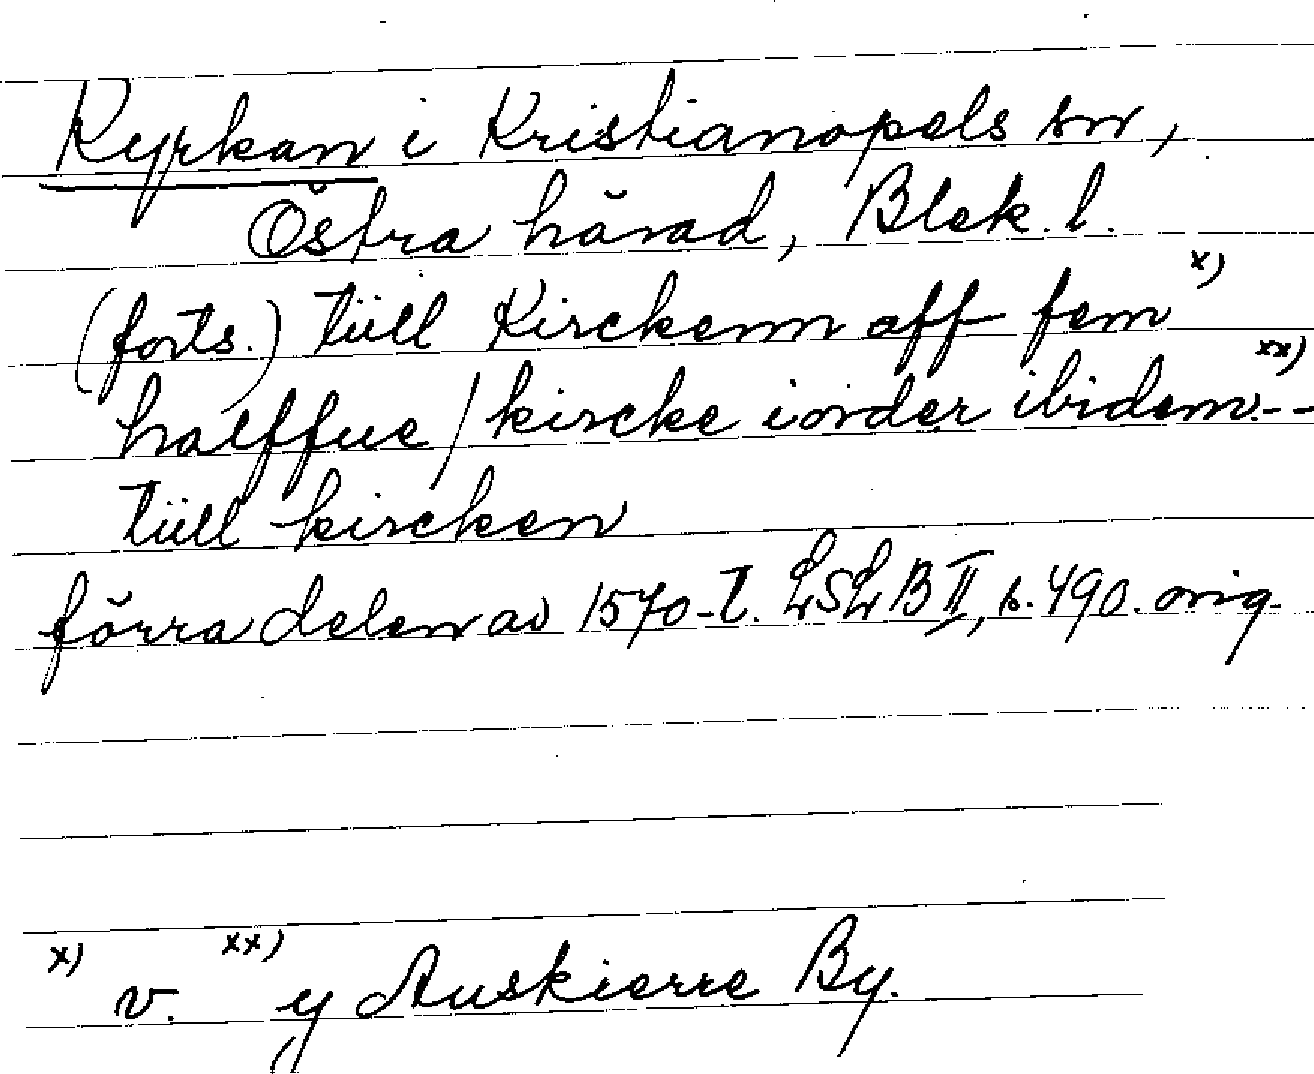 Kyrkan i Kristianopels sn,
Östra härad, Blek. l.
(forts.) tüll Kirckenn aff fem x)
halffue / kircke iorder ibidem xx) --
tüll kircken
förra delen av 1570-t. LSLB II, s. 490. orig.
x) v. xx) y Auskierre By.